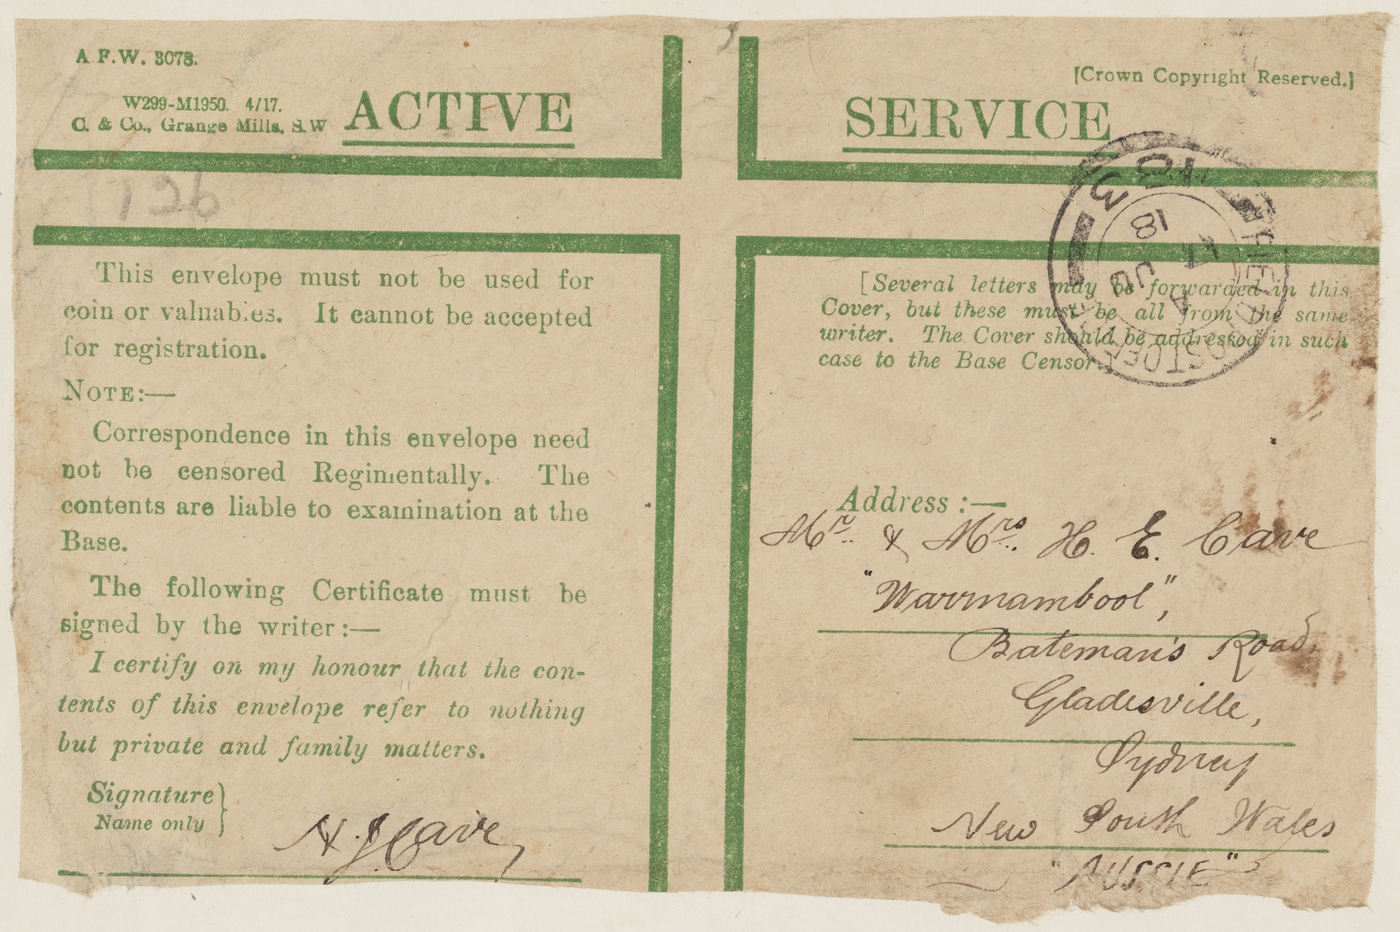 A.F.W. 3078.
W299-M1950. 4/17.
C. & Co., Grange Mills, S.W
ACTIVE SERVICE
[Crown Copyright Reserved.]
126
This envelope must not be used for
coin or valuables. It cannot be accepted
for registration.
NOTE:—
Correspondence in this envelope need
not be censored Regimentally. The
contents are liable to examination at the
Base.
The following Certificate must be
signed by the writer:—
I certify on my honour that the con-
tents of this envelope refer to nothing
but private and family matters.
Signature
Name only
H. J. Cave,
FIELD POST OFFICE
3 B
JU
18
[Several letters may be forwarded in this
Cover, but these must be all from the same
writer. The Cover should be addressed in such
case to the Base Censor.]
Address:—
Mr. & Mrs. H. E. Cave
"Warrnambool",
Bateman's Road,
Gladesville,
Sydney
New South Wales
"AUSSIE"